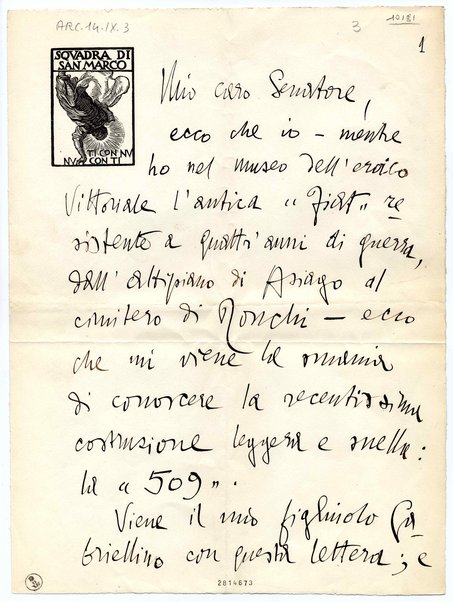 ARC.14.IX.3
3
1
SQVADRA DI
SAN MARCO
TI CON NV
NV CON TI
Mio caro Senatore,
ecco che io – mentre
ho nel museo dell'eroico
Vittoriale l'antica “Fiat” re
sistente a quattr'anni di guerra,
dall'altipiano di Asiago al
cimitero di Ronchi – ecco
che mi viene la smania
di conoscere la recentissima
costruzione leggera e snella:
la “509”.
Viene il mio figliuolo Ga-
briellino con questa lettera; e
2814673